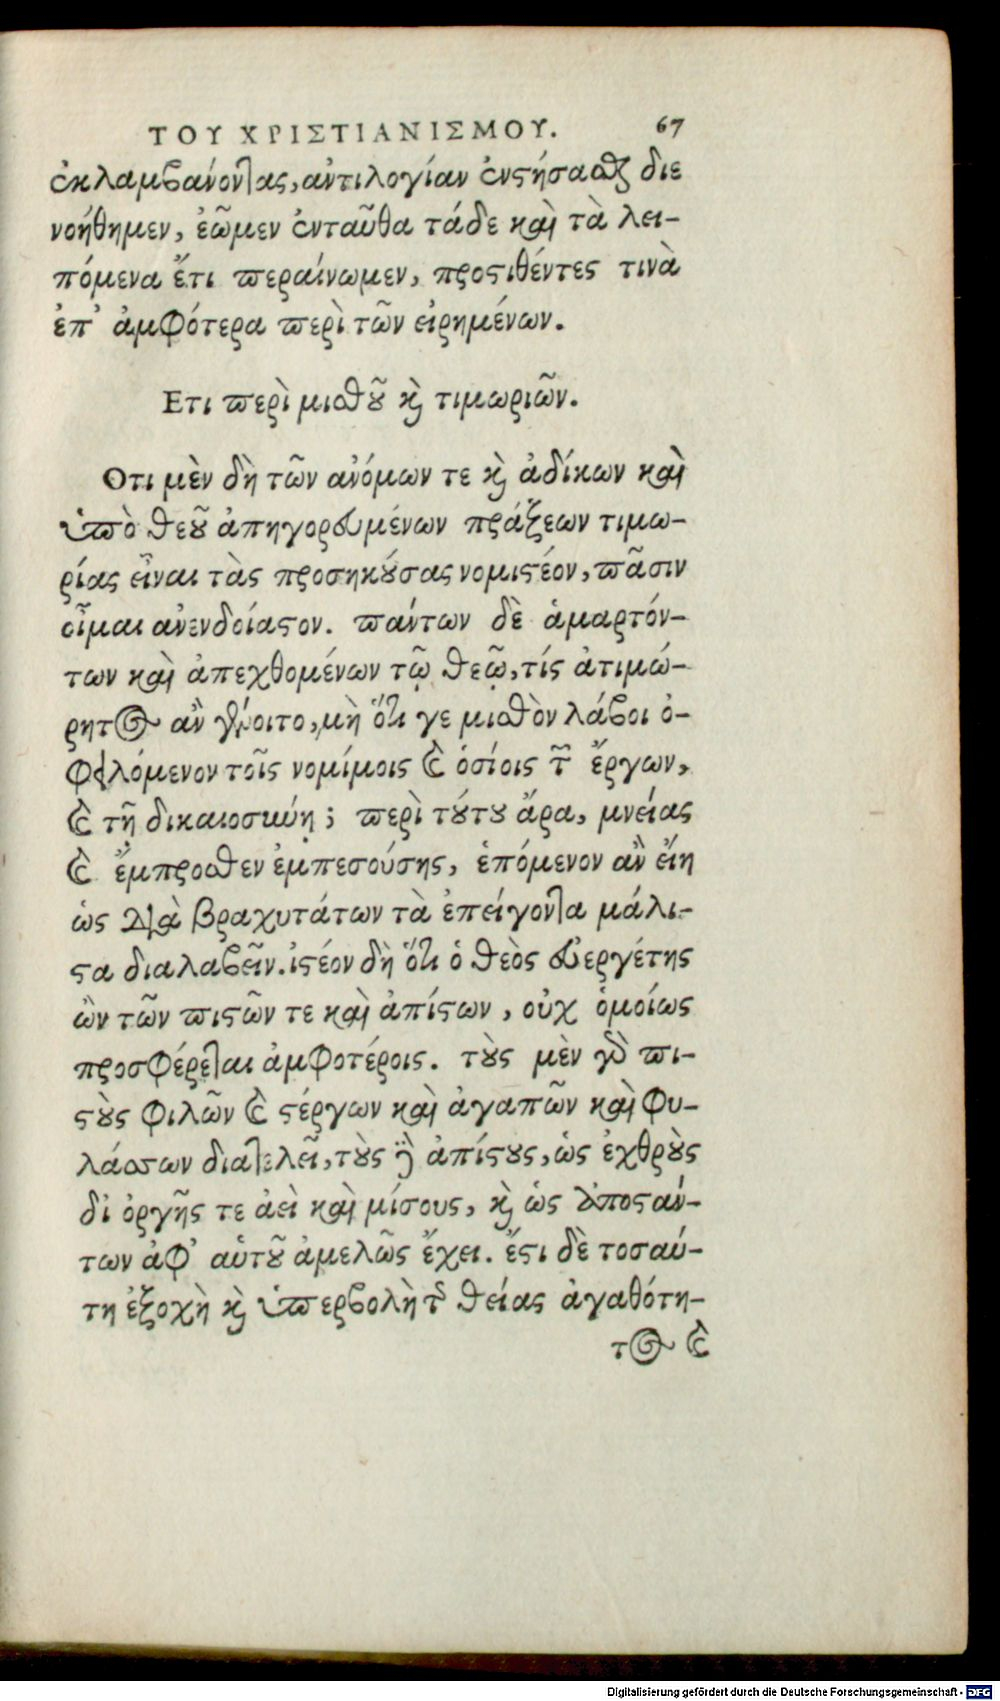 ΤΟΥ ΧΡΙΣΤΙΑΝΙΣΜΟΥ. 67
ἐκλαμβάνοντας, ἀντιλογίαν ἐνστήσασθαι διε
νοήθημεν, ἐῶμεν ἐνταῦθα τάδε καὶ τὰ λει-
πόμενα ἔτι περαίνωμεν, προστιθέντες τινὰ
ἐπ' ἀμφότερα περὶ τῶν εἰρημένων.
Ετι περὶ μισθοῦ καὶ τιμωριῶν.
Οτι μὲν δὴ τῶν ἀνόμων τε καὶ ἀδίκων καὶ
ὑπὸ θεοῦ ἀπηγορευμένων πράξεων τιμω-
ρίας εἶναι τὰς προσηκούσας νομιστέον, πᾶσιν
οἶμαι ἀνενδοίαστον. πάντων δὲ ἁμαρτόν-
των καὶ ἀπεχθομένων τῷ θεῷ, τίς ἀτιμώ-
ρητος ἂν γένοιτο, μὴ ὅτι γε μισθὸν λάβοι ὀ-
φειλόμενον τοῖς νομίμοις καὶ ὁσίοις τῶν ἔργων,
καὶ τῇ δικαιοσύνῃ; περὶ τούτου ἄρα, μνείας
καὶ ἔμπροσθεν ἐμπεσούσης, ἑπόμενον ἂν εἴη
ὡς διὰ βραχυτάτων τὰ ἐπείγοντα μάλι-
στα διαλαβεῖν. ἰστέον δὴ ὅτι ὁ θεὸς εὐεργέτης
ὢν τῶν πιστῶν τε καὶ ἀπίστων, οὐχ ὁμοίως
προσφέρεται ἀμφοτέροις. τοὺς μὲν γὰρ πι-
στοὺς φιλῶν καὶ στέργων καὶ ἀγαπῶν καὶ φυ-
λάσσων διατελεῖ, τοὺς δὲ ἀπίστους, ὡς ἐχθροὺς
δι' ὀργῆς τε ἀεὶ καὶ μίσους, καὶ ὡς ἀποστάν-
των ἀφ' αὑτοῦ ἀμελῶς ἔχει. ἔστι δὲ τοσαύ-
τη ἐξοχὴ καὶ ὑπερβολὴ τῆς θείας ἀγαθότη-
τος καὶ
Digitalisierung gefördert durch die Deutsche Forschungsgemeinschaft - DFG